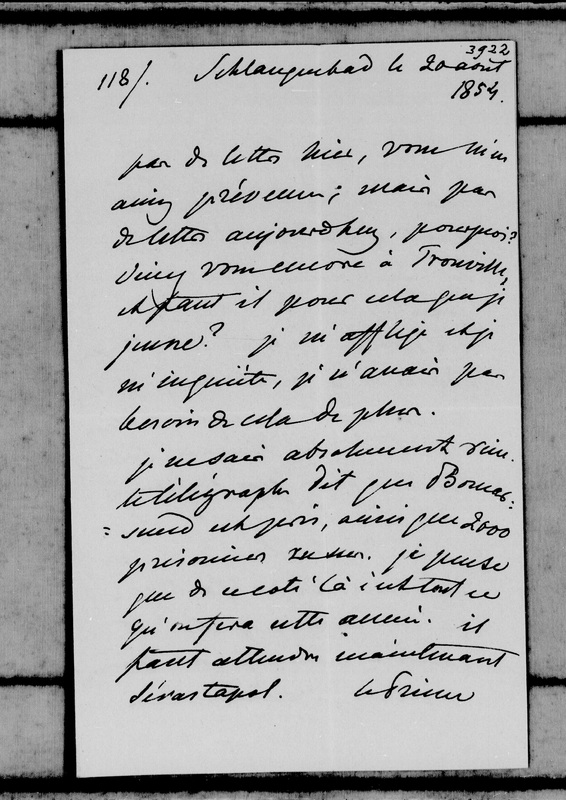 3922
118/. Schlangenbad le 20 août
1854.
pas de lettre hier, vous m'en
aviez prévenue; mais pas
de lettre aujourd'huy, pourquoi?
Diney vous encore à Trouville,
et faut il pour cela que je
jeune? je m'afflige et je
m'inquiète, je n'avais pas
besoin de cela de plus.
je ne sais absolument rien.
le télégraphe dit que Bomar=
=sund est pris, ainsi que 2000
prisonniers russes. je pense
que de ce coté là c'est tout ce
qu'on fera cette année. il
faut attendre maintenant
Sévastopol. le Prince